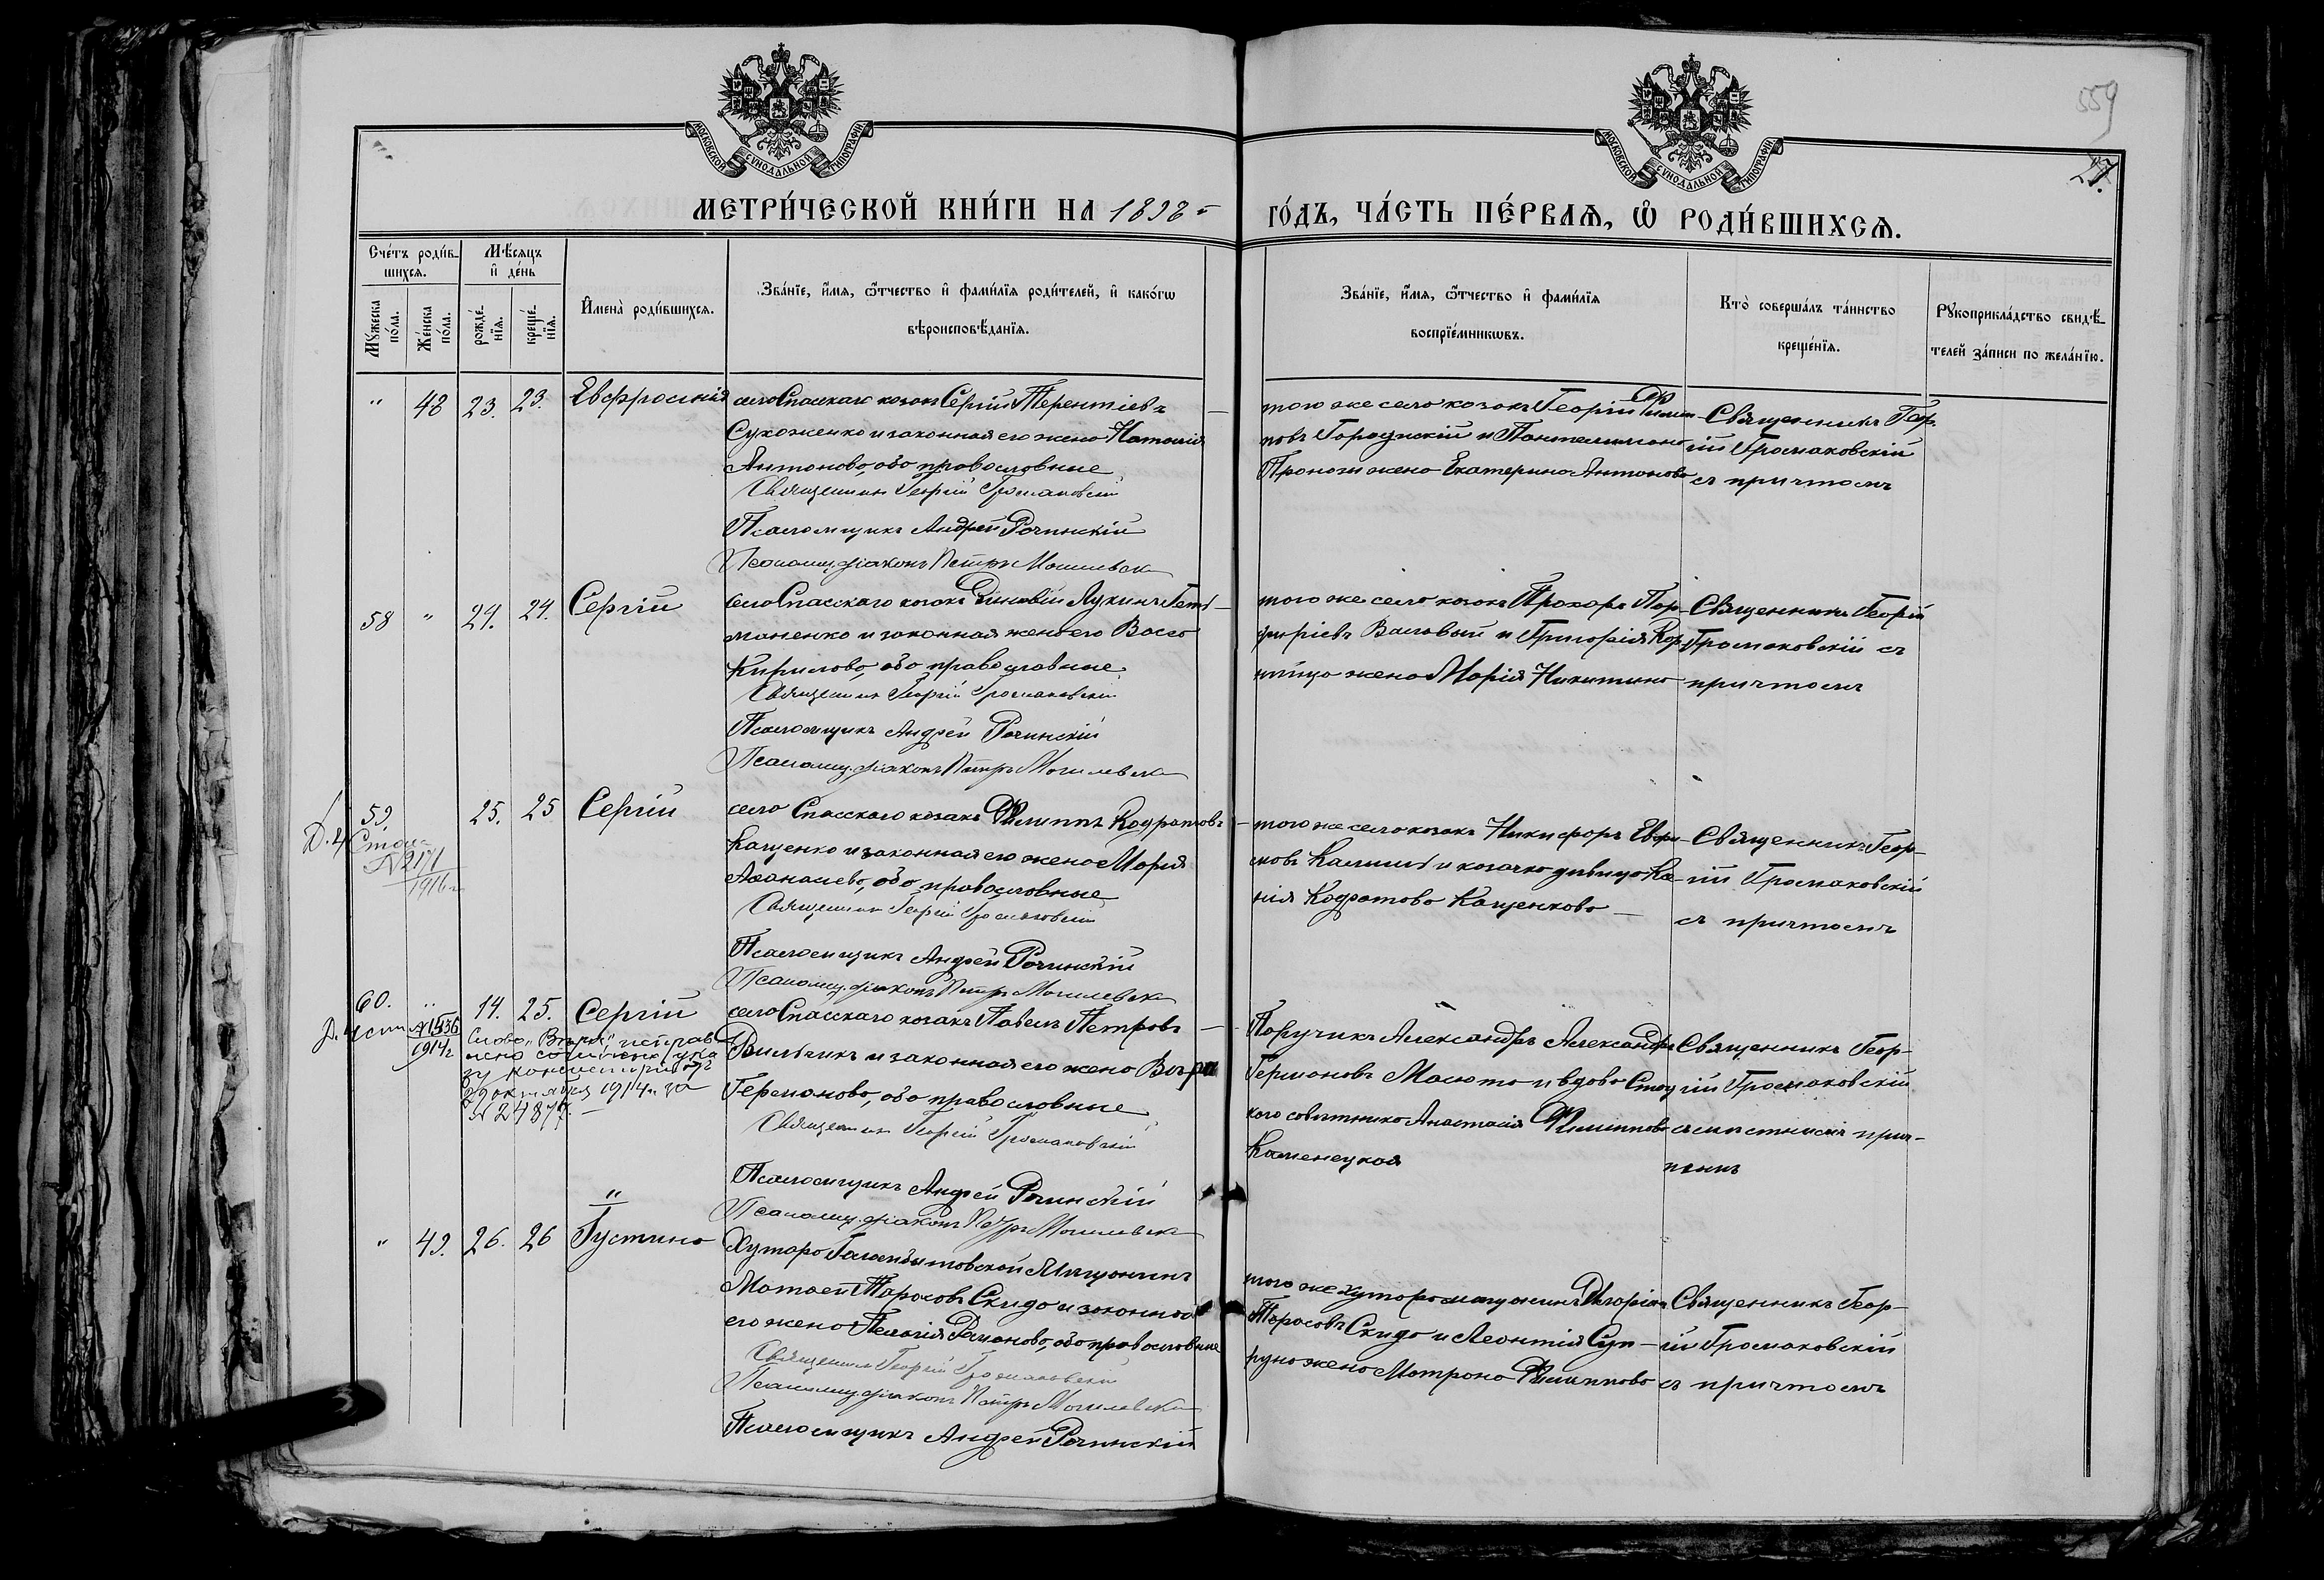 559
27.
МОСКОВСКОЙ СѴНОДАЛЬНОЙ ТИПОГРАФІИ
МОСКОВСКОЙ СѴНОДАЛЬНОЙ ТИПОГРАФІИ
МЕТРИ́ЧЕСКОЙ КНИ́ГИ НА 1898 г
ГО́ДЪ, ЧА́СТЬ ПЕ́РВАѦ, Ѡ҆ РОДИ́ВШИХСѦ.
Сче́тъ роди́в-
шихсѧ.
Мѣ́сѧцъ
и҆ де́нь
Мꙋ́жеска
по́ла.
Же́нска
по́ла.
рожде́-
нїѧ.
креще́-
нїѧ.
И҆мена̀ роди́вшихсѧ.
Зва́нїе, и҆́мѧ, ѻ҆́тчество и҆ фами́лїѧ роди́телей, и҆ како́гѡ
вѣроисповѣ́данїѧ.
Зва́нїе, и҆́мѧ, ѻ҆́тчество и҆ фами́лїѧ
воспрїе́мникѡвъ.
Кто̀ соверша́лъ та́инство
креще́нїѧ.
Рꙋкоприкла́дство свидѣ́-
телей за́писи по жела́нїю.
" 48 23. 23. Евфросинія
села Спасскаго козакъ Сергій Терентіевъ
Сухоженко и законная его жена Наталія
Антонова, оба православные
Священникъ Георгій Громаковскій
Псаломщикъ Андрей Рочинскій
Псаломщ. діаконъ Петръ Могилевск
того же села козакъ Георгій Филип-
повъ Городнскій и Пантелимона
жена Екатерина Антонова
Священникъ Геор-
гій Громаковскій
съ причтомъ
58 " 24. 24. Сергій
села Спасскаго козакъ Зиновій Лукинъ Геть-
маненко и законная жена его Васса
Кирилова, оба православные
Священникъ Георгій Громаковскій
Псаломщикъ Андрей Рочинскій
Псаломщ. діаконъ Петръ Могилевск
того же села козакъ Прохоръ Пор-
фиріевъ Валовый и Григорія Кор-
жена Марія Никитина
Священникъ Георгій
Громаковскій съ
причтомъ
59 25. 25 Сергій
Д. 4 Стола
№ 2171
1916 г
села Спасскаго козакъ Филиппъ Кодратовъ
Кащенко и законная его жена Марія
Аѳанасіева, оба православные
Священникъ Георгій Громаковскій
Псаломщикъ Андрей Рочинскій
Псаломщ. діаконъ Петръ Могилевск
того же села козакъ Никифоръ Евфи-
мовъ и козачка дѣвица Ксе-
нія Кодратова Кащенкова
Священникъ Геор-
гій Громаковскій
съ причтомъ
60. " 14. 25. Сергій
Д. 4 ст № 1536
1914 г
Слово "Вѣра" исправ
лено согласно ука
зу консисторіи отъ
29 октября 1914 г. за
№ 24877.
села Спасскаго козакъ Павелъ Петровъ
Вильчикъ и законная его жена Вѣра
Германова, оба православные
Священникъ Георгій Громаковскій
Псаломщикъ Андрей Рочинскій
Псаломщ. діаконъ Петръ Могилевск
Поручикъ Александръ Александр
Германовъ Масюта и вдова Стат
кого совѣтника Анастасія Филиппова
Каменецкая
Священникъ Геор-
гій Громаковскій
съ мѣстнымъ прич-
томъ
" 49. 26. 26 Іустина
Хутора мѣщанинъ
Матѳей Тарасовъ Скидо и законная
его жена Пелагія Романова, оба православные
Священникъ Георгій Громаковскій
Псаломщ. діаконъ Петръ Могилевск
Псаломщикъ Андрей Рочинскій
того же хутора мѣщанинъ Григорій
Тарасовъ Скидо и Леонтія Суп-
руна жена Матрона Филиппова
Священникъ Геор-
гій Громаковскій
съ причтомъ